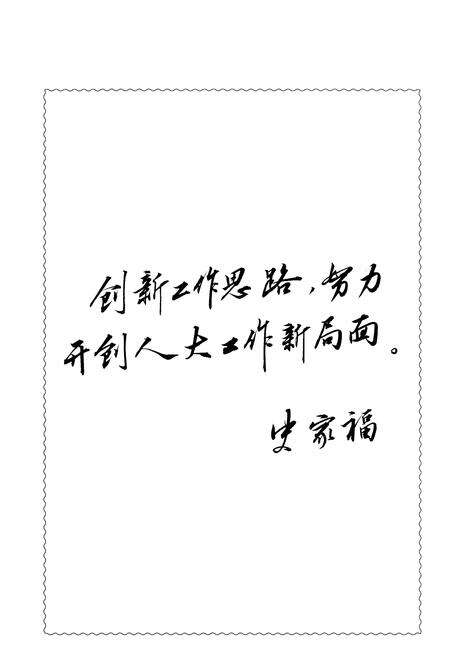 创新工作思路，努力
开创人大工作新局面。
史家福